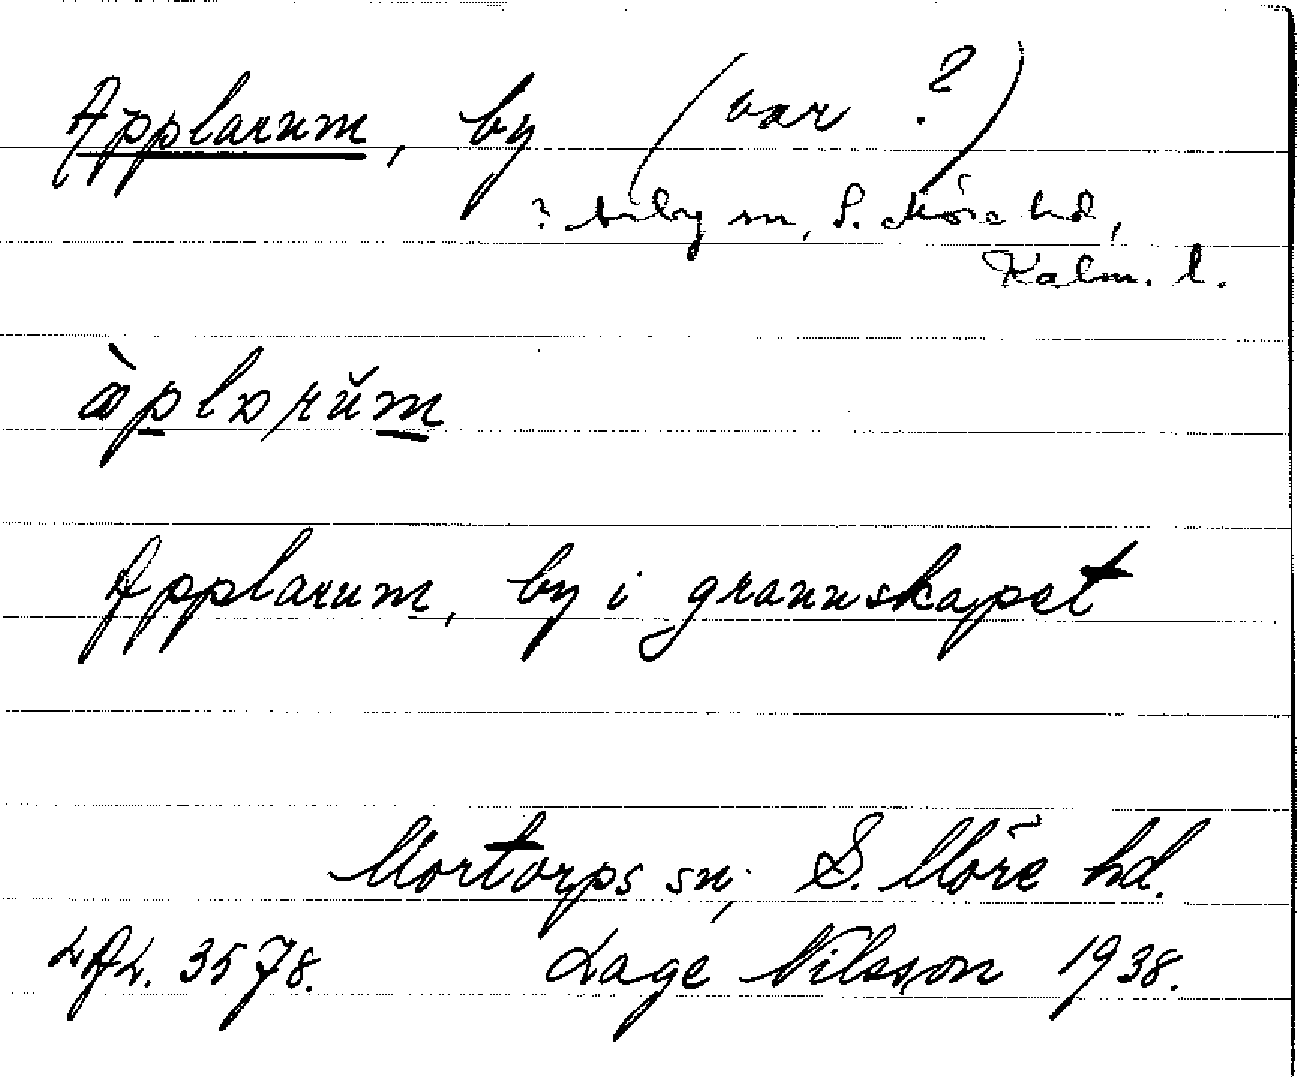 Applarum, by (var ?)
? Arby sn, S. Möre hd,
Kalm. l.
Applarum, by i grannskapet
Mortorps sn; S. Möre hd.
LAL. 3578. Lage Nilsson 1938.